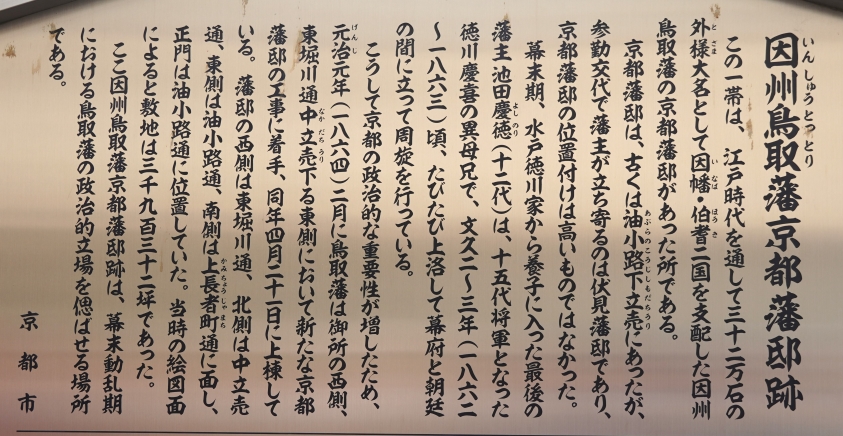 因州鳥取藩京都藩邸跡
この一帯は、江戸時代を通して三十二万石の
外様大名として因幡・伯耆二国を支配した因州
鳥取藩の京都藩邸があった所である。
京都藩邸は、古くは油小路下立売にあったが、
参勤交代で藩主が立ち寄るのは伏見藩邸であり、
京都藩邸の位置付けは高いものではなかった。
幕末期、水戸徳川家から養子に入った最後の
藩主池田慶徳(十二代)は、十五代将軍となった
徳川慶喜の異母兄で、文久二〜三年(一八六二
〜一八六三)頃、たびたび上洛して幕府と朝廷
の間に立って周旋を行っている。
こうして京都の政治的な重要性が増したため、
元治元年(一八六四)二月に鳥取藩は御所の西側、
東堀川通中立売下る東側において新たな京都
藩邸の工事に着手、同年四月二十一日に上棟して
いる。藩邸の西側は東堀川通、北側は中立売
通、東側は油小路通、南側は上長者町通に面し、
正門は油小路通に位置していた。当時の絵図面
によると敷地は三千九百三十二坪であった。
ここ因州鳥取藩京都藩邸跡は、幕末動乱期
における鳥取藩の政治的立場を偲ばせる場所
である。
京都市